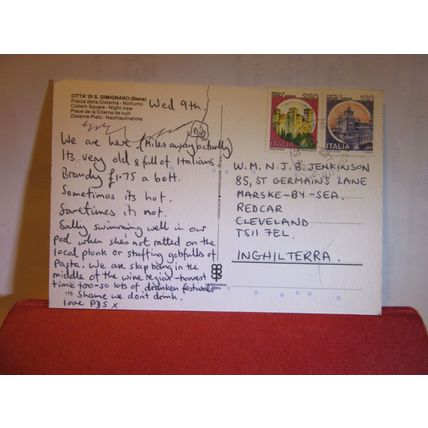 CITTA' DI S. GIMIGNANO (Siena)
Piazza della Cisterna - Notturno
Cistern Square - Night view
Place de la Citerne de nuit
Zisterne-Platz - Nachtaufnahme
Wed 9th.
We are here (Miles away actually)
Its very old & full of Italians
Brandy £1.75 a bott.
Sometimes its hot.
Sometimes its not.
Sally swimming well in our
pool when shes not ratted on the
local plonk or stuffing gobfulls of
Pasta. We are slap bang in the
middle of the wine region - harvest
time too - so lots of drunken festivals
Shame we dont drink.
love PJS x
ITALIA
ITALIA
W.M.N.J.B. JENKINSON
85, ST GERMAIN'S LANE
MARSKE-BY-SEA.
REDCAR
CLEVELAND
TS11 7EL.
INGHILTERRA.